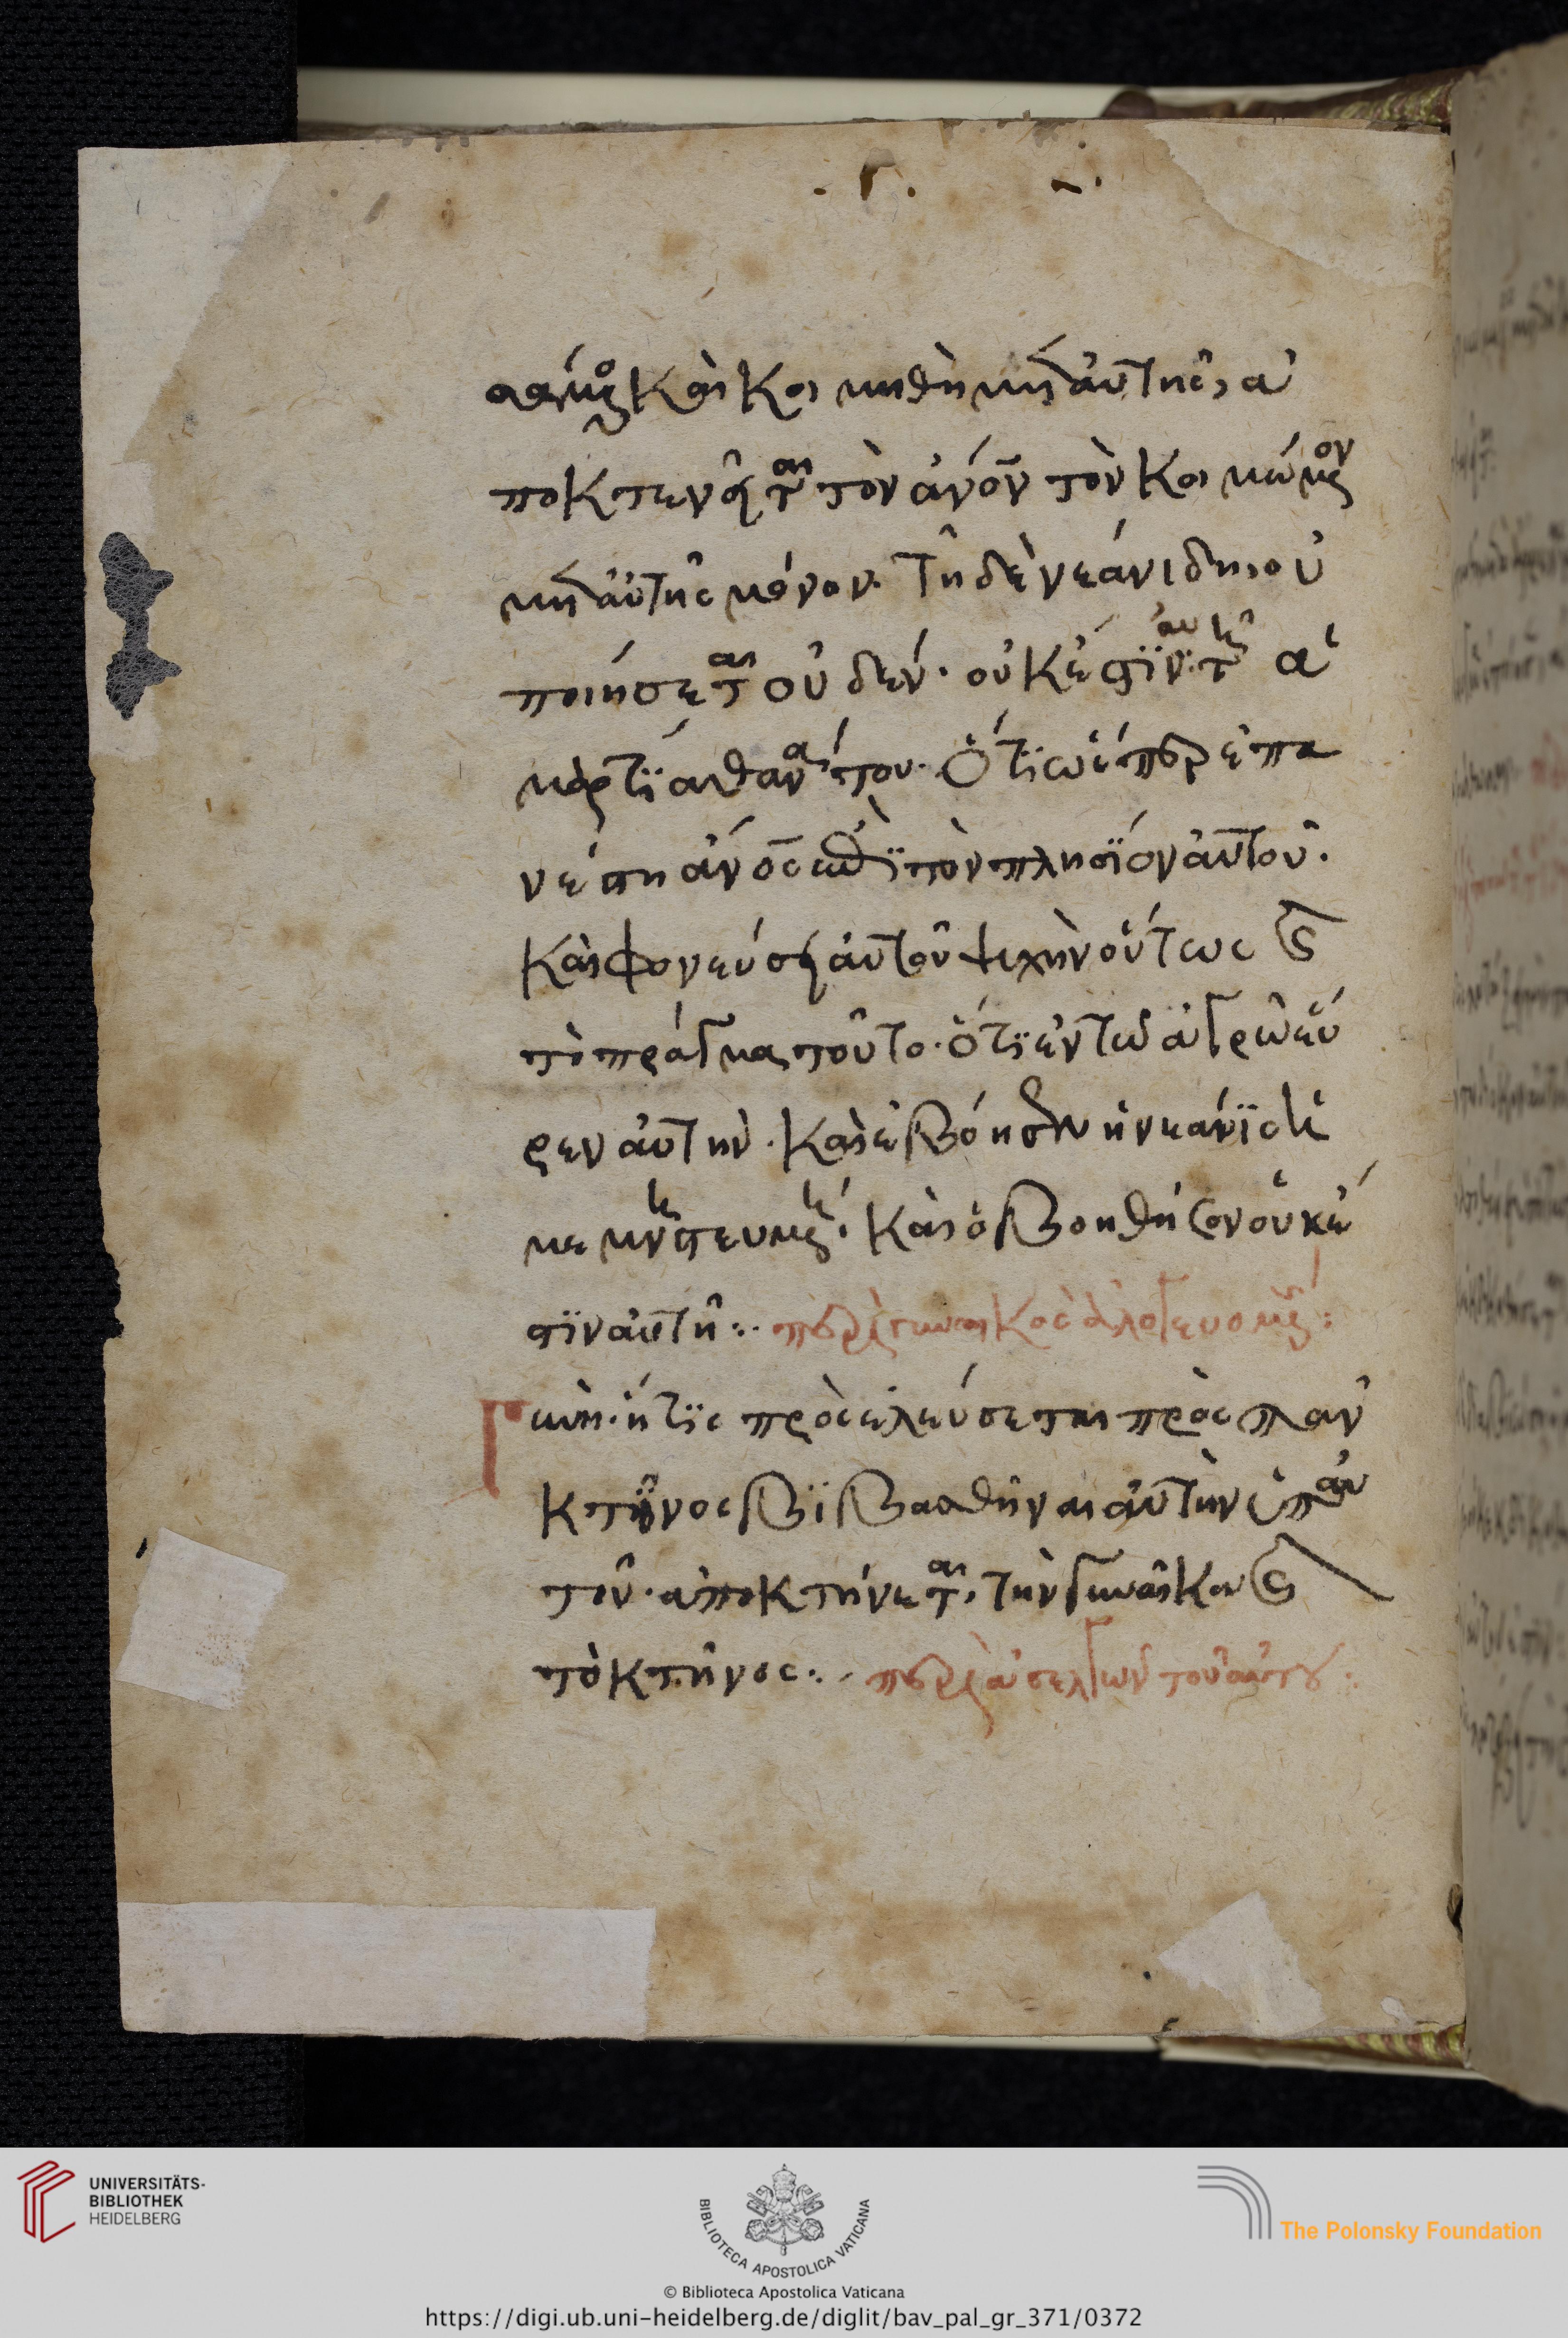 . Γ.
σάμενος καὶ κοιμηθῆ μετ' αὐτῆς, ἀ
ποκτενεῖται τὸν ἄνον τὸν κοιμώμενον
μετ' αὐτῆς μόνον. Τῆ δὲ νεάνιδη, οὐ
ποιήσεται οὐδέν. οὐκ ἔστϊν αὐτῆς ἁ
μάρτϊα θανάτου. ὅτϊ ὡς εἴπερ ἐπα
νέστη ἄνος ἐπὶ τὸν πλησΐον αὐτοῦ.
Καὶ φονεύση αὐτοῦ ψιχὴν οὕτως
τὸ πράγμα τοῦτο. ὅτϊ ἐν τῶ ἀγρῶ εὗ
ρεν αὐτὴν. Καὶ ἐβόησεν ἡ νεάνϊς ἡ
μεμνηστευμένη. Καὶ ὁ βοηθήσον οὐκ ἔ
στϊν αὐτῆ:. περὶ γυναικὸς ἀλογευομένης:
Γυνὴ. ἥτϊς προσελεύσεται πρὸς πᾶν
κτῆνος βϊβασθῆναι αὐτὴν ὑπ' αὐ
τοῦ. ἀποκτήνεται, τὴν γυναῖκα
τὸ κτῆνος:. περὶ ἀσελγῶν τοῦ αὐτοῦ:
UNIVERSITÄTS-
BIBLIOTHEK
HEIDELBERG
BIBLIOTECA APOSTOLICA VATICANA
The Polonsky Foundation
© Biblioteca Apostolica Vaticana
https://digi.ub.uni-heidelberg.de/diglit/bav_pal_gr_371/0372